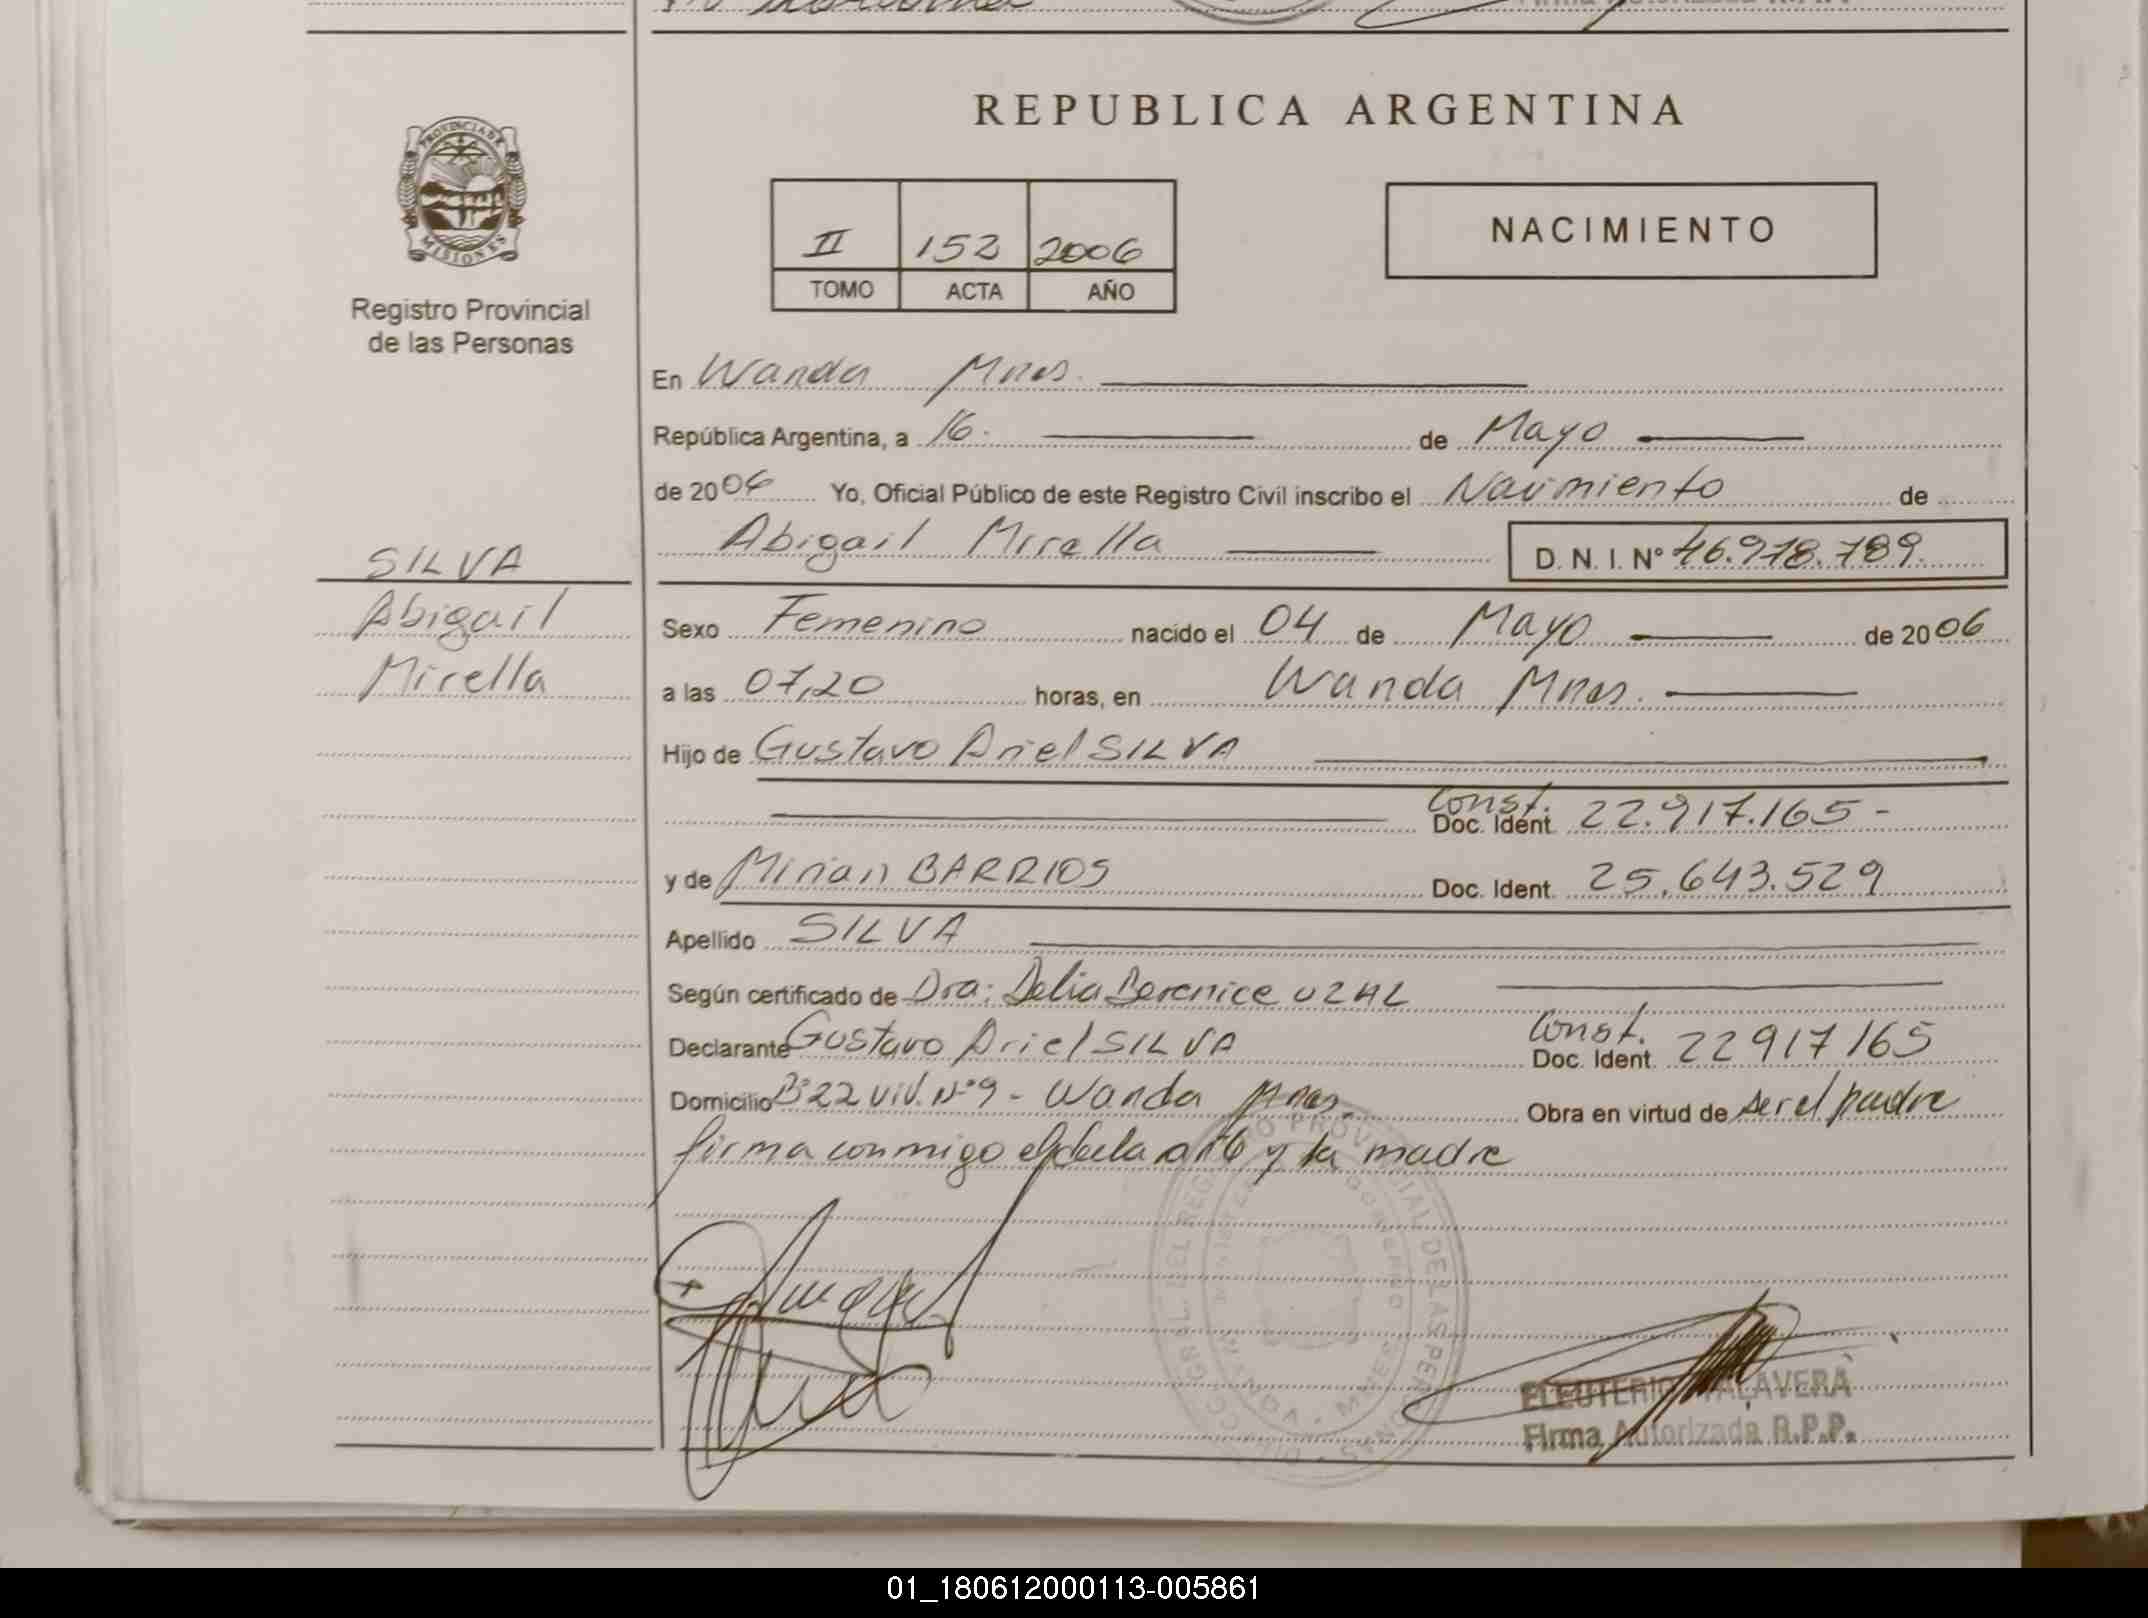 REPUBLICA ARGENTINA
PROVINCIA DE
MISIONES
Registro Provincial
de las Personas
II 152 2006
TOMO ACTA AÑO
NACIMIENTO
En Wanda Mnes.
República Argentina, a 16. de Mayo
de 2006 Yo, Oficial Público de este Registro Civil inscribo el Nacimiento de
Abigail Mirella D. N. I. Nº 46.978.789.
SILVA
Abigail
Mirella
Sexo Femenino nacido el 04 de Mayo de 2006
a las 07,20 horas, en Wanda Mnes.
Hijo de Gustavo Ariel SILVA
Const.
Doc. Ident. 22.917.165-
y de Mirian BARRIOS Doc. Ident. 25.643.529
Apellido SILVA
Según certificado de Dra: Delia Berenice UZAL
Declarante Gustavo Ariel SILVA Const. Doc. Ident. 22917165
Domicilio Bº 22 viv. Nº 9 - Wanda Mnes. Obra en virtud de ser el padre
firma conmigo el y la madre
ELEUTERIO TALAVERA
Firma Autorizada R.P.P.
01_180612000113-005861